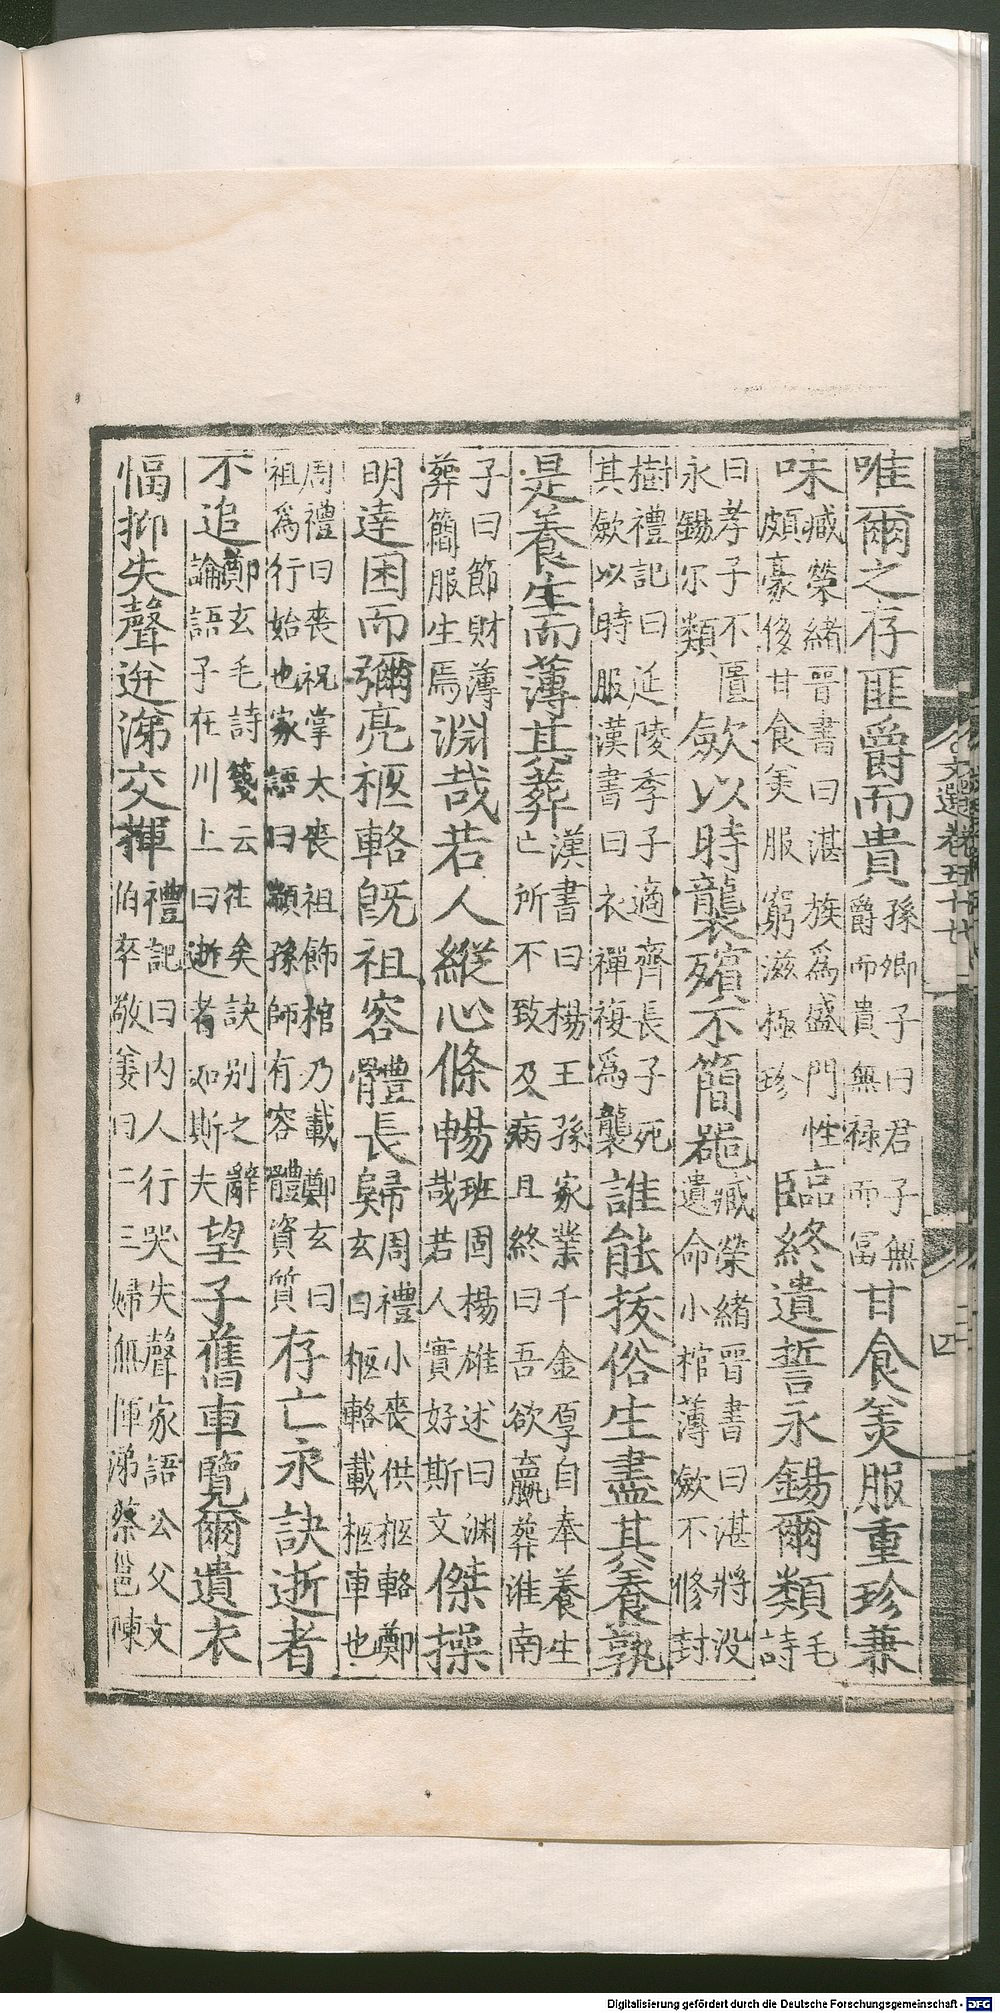 唯爾之存匪爵而貴孫卿子曰君子無爵而貴無祿而富甘食羙服重珍兼
味臧榮緒晉書曰湛族為盛門性頗豪侈甘食羙服窮滋極珍臨終遺誓永錫爾類毛詩
曰孝子不匱永錫尔類斂以時襲殯不簡器臧榮緒晉書曰湛將没遺命小棺薄斂不修封
樹禮記曰延陵季子適齊長子死其斂以時服漢書曰衣襌複爲襲誰能拔俗生盡其養孰
是養生而薄其葬漢書曰楊王孫家業千金厚自奉養生亡所不致及病且終曰吾欲臝葬淮南
子曰節財薄葬簡服生焉淵哉若人縱心條暢班固楊雄述曰淵哉若人實好斯文傑操
明達困而彌亮柩輅旣祖容體長歸周禮小喪供柩輅鄭玄曰柩輅載柩車也
周禮曰喪祝掌大喪祖飾棺乃載鄭玄曰祖爲行始也家語曰顓孫師有容體資質存亡永訣逝者
不追鄭玄毛詩箋云往矣訣别之辭論語子在川上曰逝者如斯夫望子舊車覽爾遺衣
愊抑失聲迸涕交揮禮記曰内人行哭失聲家語公父文伯卒敬姜曰二三婦無揮涕蔡邕陳
文選卷五十七
四
Digitalisierung gefördert durch die Deutsche Forschungsgemeinschaft - DFG